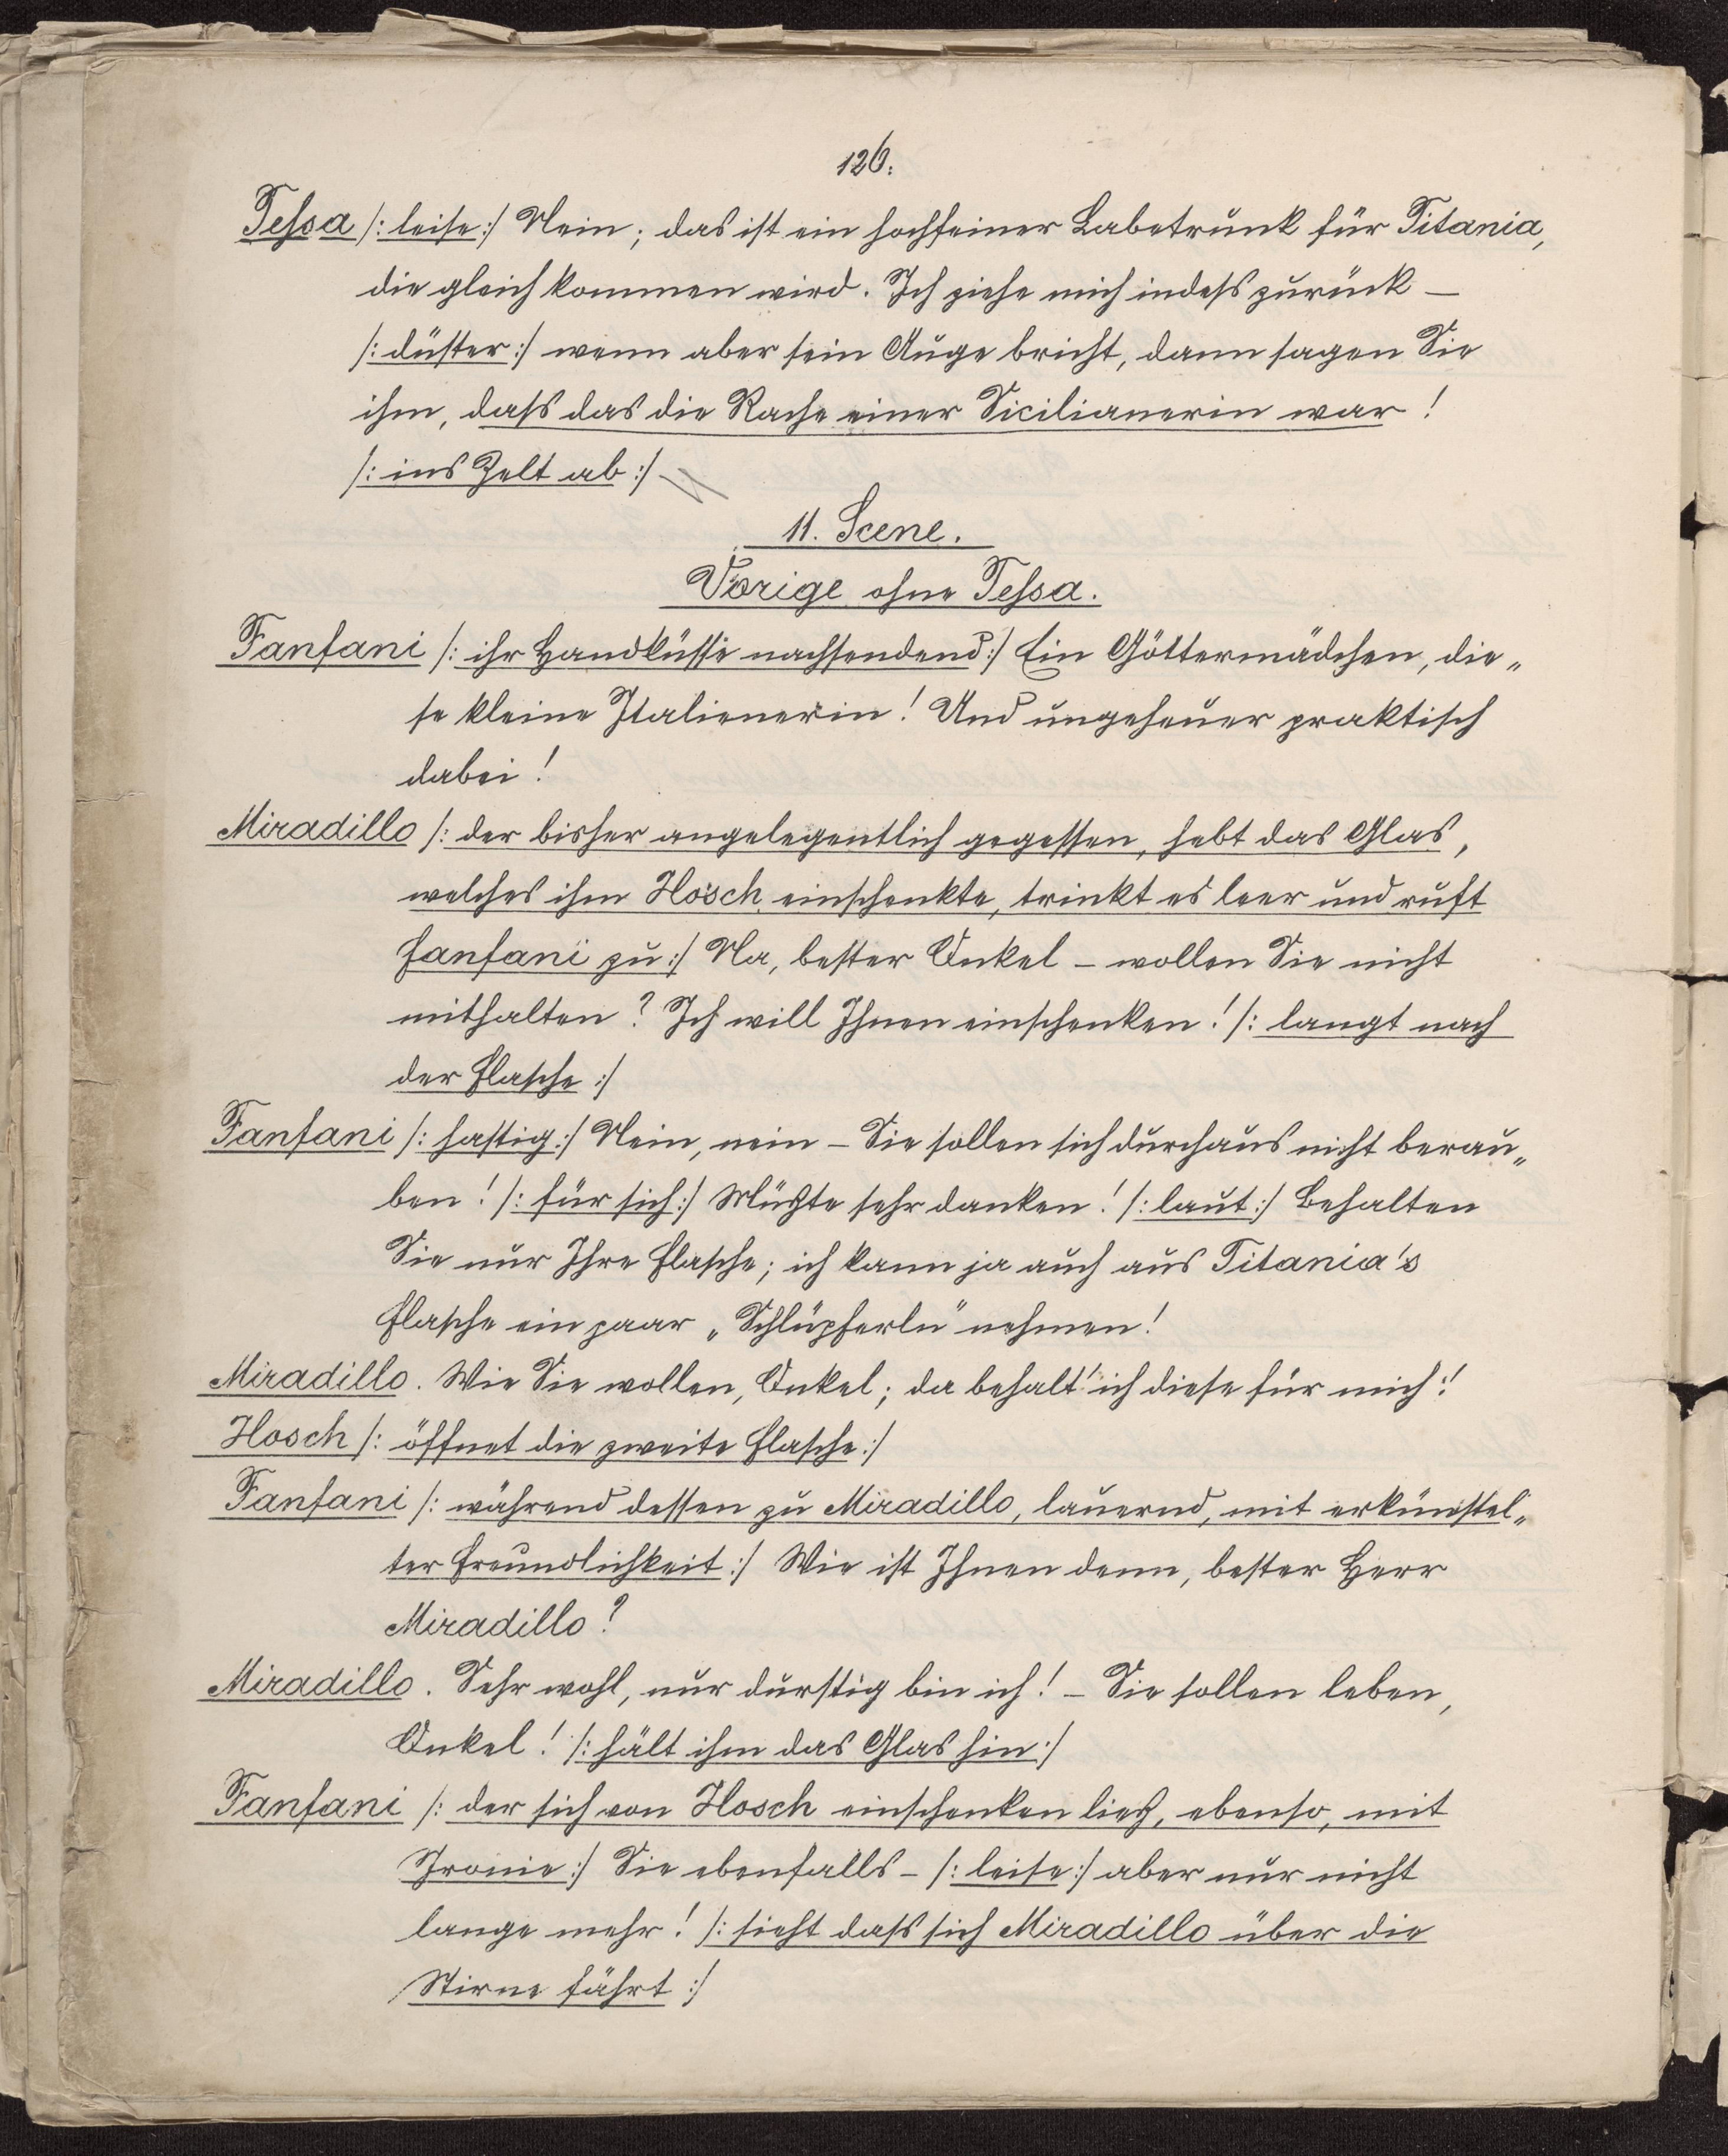 126.
Tessa /: leise :/ Nein; das ist ein hochfeiner Labetrunk für Titania,
die gleich kommen wird. Ich ziehe mich indess zurück –
/: düster :/ wenn aber sein Auge bricht, dann sagen Sie
ihm, dass das die Rache einer Sicilianerin war!
/: ins Zelt ab :/
11. Scene.
Vorige ohne Tessa.
Fanfani /: ihr Handküsse nachsendend :/ Ein Göttermädchen, die„
se kleine Italienerin! Und ungeheuer praktisch
dabei!
Miradillo /: der bisher angelegentlich gegessen, hebt das Glas,
welches ihm Hosch einschenkte, trinkt es leer und ruft
Fanfani zu :/ Na, bester Onkel – wollen Sie nicht
mithalten? Ich will Ihnen einschenken! /: langt nach
der Flasche :/
Fanfani /: hastig :/ Nein, nein – Sie sollen sich durchaus nicht berau„
ben! /: für sich :/ Müßte sehr danken! /: laut :/ Behalten
Sie nur Ihre Flasche; ich kann ja auch aus Titania's
Flasche ein paar „Schlüpferln" nehmen!
Miradillo. Wie Sie wollen, Onkel; da behalt' ich diese für mich!
Hosch /: öffnet die zweite Flasche :/
Fanfani /: während dessen zu Miradillo, lauernd, mit erkünstel„
ter Freundlichkeit :/ Wie ist Ihnen denn, bester Herr
Miradillo?
Miradillo. Sehr wohl, nur durstig bin ich! – Sie sollen leben,
Onkel! /: hält ihm das Glas hin :/
Fanfani /: der sich von Hosch einschenken ließ, ebenso, mit
Ironie :/ Sie ebenfalls – /: leise :/ aber nur nicht
lange mehr! /: sieht dass sich Miradillo über die
Stirne fährt :/